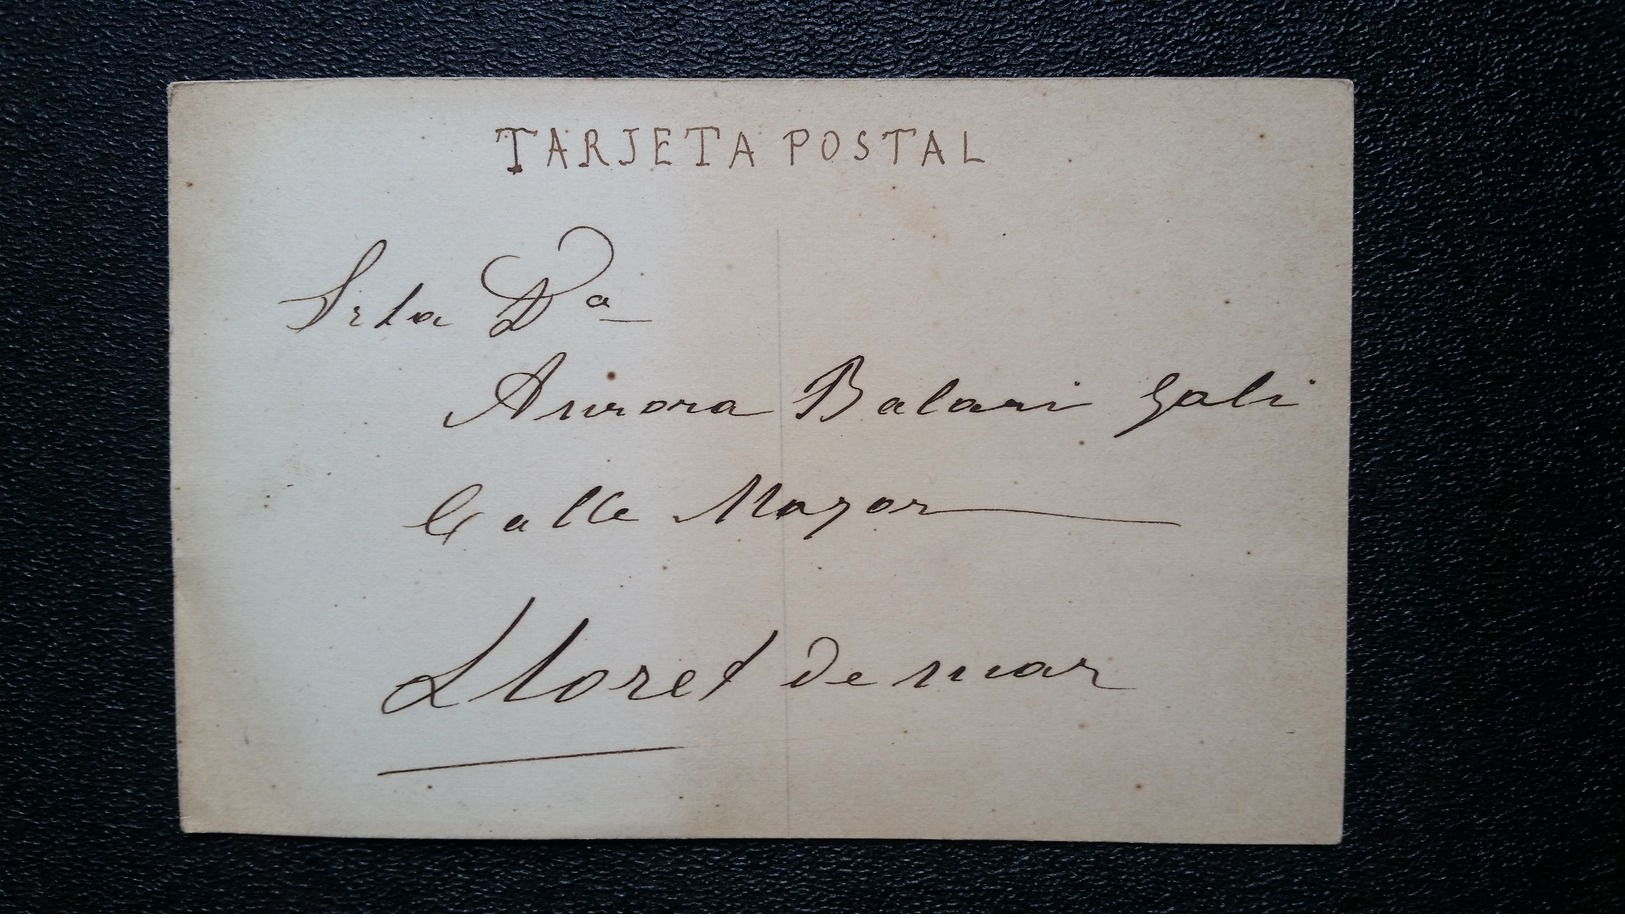 TARJETA POSTAL
Srta Dª
Aurora Balari Gali
Calle Mayor
Lloret de mar